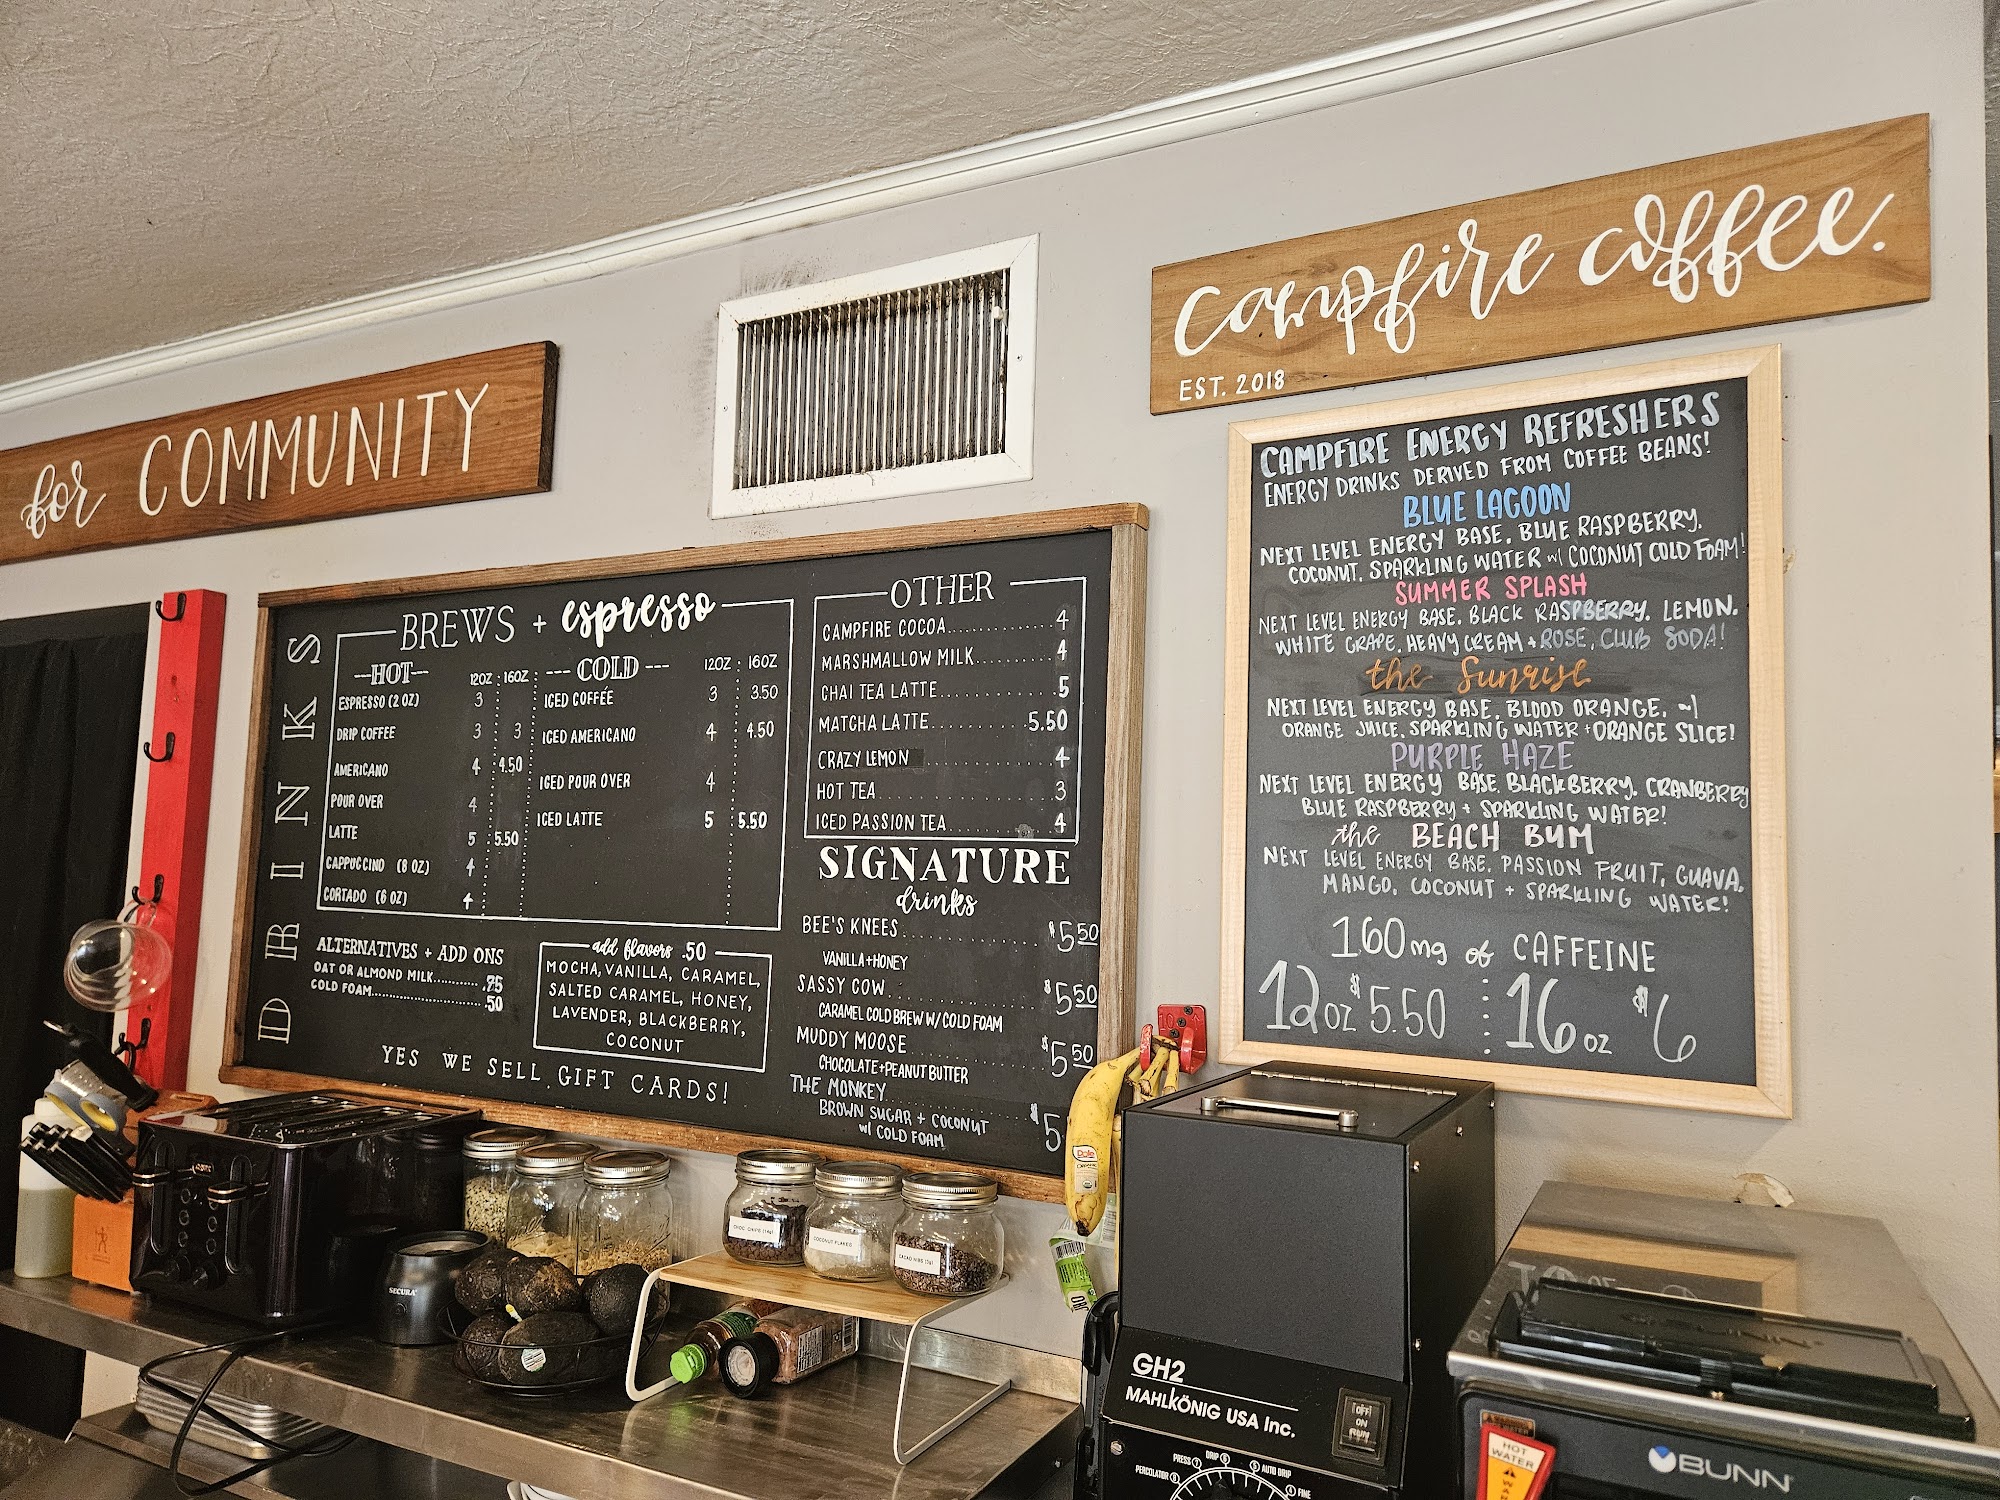 for COMMUNITY
campfire coffee.
EST. 2018
DRINKS
BREWS + espresso
---HOT--- 12OZ : 16OZ
ESPRESSO (2 OZ) 3
DRIP COFFEE 3 3
AMERICANO 4 4.50
POUR OVER 4
LATTE 5 5.50
CAPPUCCINO (8 OZ) 4
CORTADO (6 OZ) 4
--- COLD --- 12OZ : 16OZ
ICED COFFEE 3 3.50
ICED AMERICANO 4 4.50
ICED POUR OVER 4
ICED LATTE 5 5.50
ALTERNATIVES + ADD ONS
OAT OR ALMOND MILK............75
COLD FOAM.....................50
add flavors .50
MOCHA, VANILLA, CARAMEL,
SALTED CARAMEL, HONEY,
LAVENDER, BLACKBERRY,
COCONUT
YES WE SELL GIFT CARDS!
OTHER
CAMPFIRE COCOA..............4
MARSHMALLOW MILK...........4
CHAI TEA LATTE..............5
MATCHA LATTE.............5.50
CRAZY LEMON ..............4
HOT TEA......................3
ICED PASSION TEA............4
SIGNATURE
drinks
BEE'S KNEES.............$5.50
VANILLA+HONEY
SASSY COW..............$5.50
CARAMEL COLD BREW W/ COLD FOAM
MUDDY MOOSE...........$5.50
CHOCOLATE+PEANUT BUTTER
THE MONKEY
BROWN SUGAR + COCONUT
W/ COLD FOAM
CAMPFIRE ENERGY REFRESHERS
ENERGY DRINKS DERIVED FROM COFFEE BEANS!
BLUE LAGOON
NEXT LEVEL ENERGY BASE, BLUE RASPBERRY,
COCONUT, SPARKLING WATER w/ COCONUT COLD FOAM!
SUMMER SPLASH
NEXT LEVEL ENERGY BASE, BLACK RASPBERRY, LEMON,
WHITE GRAPE, HEAVY CREAM + ROSE, CLUB SODA!
the Sunrise
NEXT LEVEL ENERGY BASE, BLOOD ORANGE, ~
ORANGE JUICE, SPARKLING WATER + ORANGE SLICE!
PURPLE HAZE
NEXT LEVEL ENERGY BASE, BLACKBERRY, CRANBERRY
BLUE RASPBERRY + SPARKLING WATER!
the BEACH BUM
NEXT LEVEL ENERGY BASE, PASSION FRUIT, GUAVA,
MANGO, COCONUT + SPARKLING WATER!
160mg of CAFFEINE
12oz $5.50 16oz $6
SECURA
CHOC CHIPS (14g)
COCONUT FLAKES
CACAO NIBS (5g)
Dole
ORGANIC
GH2
MAHLKÖNIG USA Inc.
OFF
ON
RUN
PRESS 7 DRIP 6 5 AUTO DRIP
PERCOLATOR 8 4 FINE
HOT
WATER
BUNN